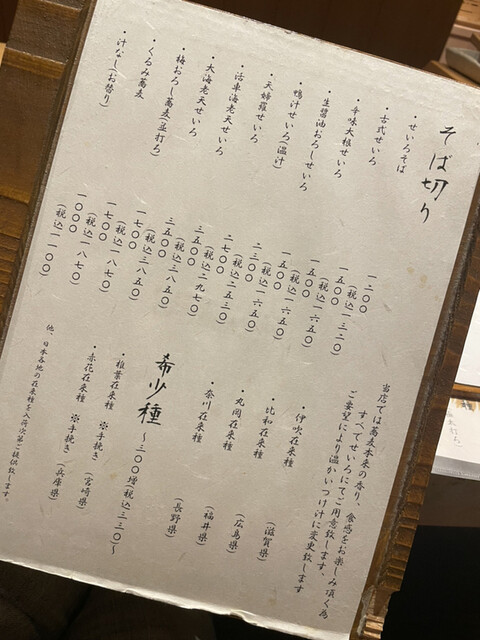 そば切り
・せいろそば 一二〇〇
(税込一三二〇)
・古式せいろ 一五〇〇
(税込一六五〇)
・辛味大根せいろ 一五〇〇
(税込一六五〇)
・生醤油おろしせいろ 一五〇〇
(税込一六五〇)
・鴨汁せいろ(温汁) 二三〇〇
(税込二五三〇)
・天婦羅せいろ 二七〇〇
(税込二九七〇)
・活車海老天せいろ 三五〇〇
(税込三八五〇)
・大海老天せいろ 三五〇〇
(税込三八五〇)
・梅おろし蕎麦(並打ち) 一七〇〇
(税込一八七〇)
・くるみ蕎麦 一七〇〇
(税込一八七〇)
・汁なし(お替り) 一〇〇〇
(税込一一〇〇)
当店では蕎麦本来の香り、食感をお楽しみ頂く為
すべてせいろにてご用意致します、
ご要望により温かいつけ汁に変更致します
・伊吹在来種 (滋賀県)
・比和在来種 (広島県)
・丸岡在来種 (福井県)
・奈川在来種 (長野県)
希少種 〜三〇〇増(税込三三〇)〜
・椎葉在来種 ※手挽き (宮崎県)
・赤花在来種 ※手挽き (兵庫県)
他、日本各地の在来種を入荷次第ご提供致します。